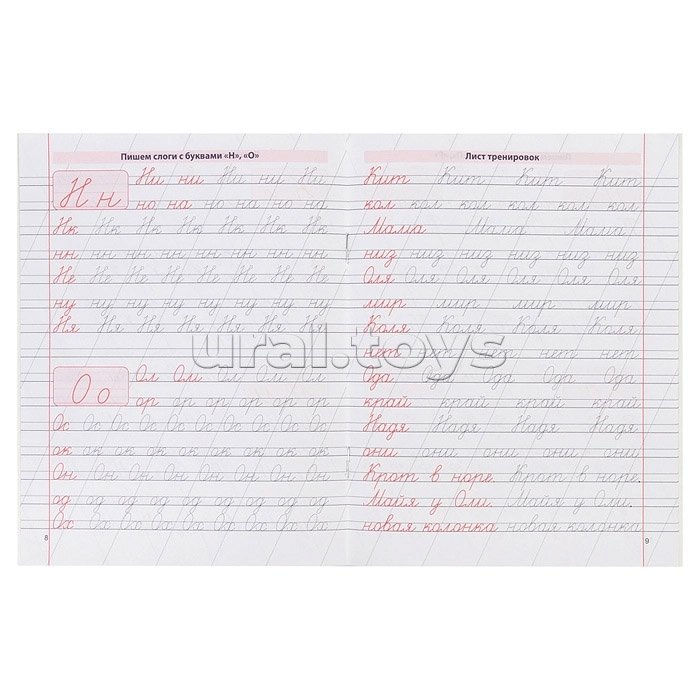 Пишем слоги с буквами «Н», «О»
Н н
Ни ни Ни ни Ни
но на но на но на
Нк Нк Нк Нк Нк Нк Нк
нн нн нн нн нн нн нн
Не Не Не Не Не Не Не
ну ну ну ну ну ну ну
Ня Ня Ня Ня Ня Ня Ня
О о
Ол Ол Ол Ол Ол
ор ор ор ор ор ор
Ос Ос Ос Ос Ос Ос Ос Ос
ок ок ок ок ок ок ок ок
Он Он Он Он Он Он Он
од од од од од од од од
Ох Ох Ох Ох Ох Ох Ох Ох
8
Лист тренировок
Кит Кит Кит Кит
кол кол кол кол кол кол
Мама Мама Мама
низ низ низ низ низ низ
Оля Оля Оля Оля Оля Оля
мир мир мир мир
Коля Коля Коля Коля
нет нет нет нет нет
Ода Ода Ода Ода Ода
край край край край
Надя Надя Надя Надя
они они они они они
Крот в норе. Крот в норе.
Майя у Оли. Майя у Оли.
новая колонка новая колонка
9
ural.toys